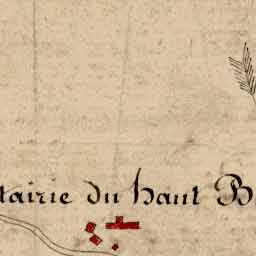 tairie du haut B